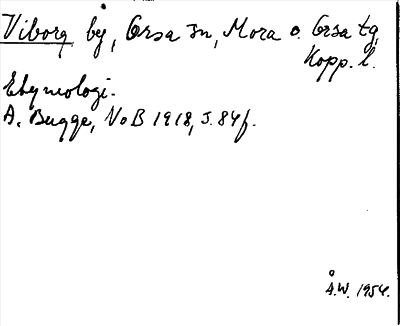 Viborg by, Orsa sn, Mora o. Orsa tg,
Kopp. l.
Etymologi.
A. Bugge, NoB 1918, s. 84f.
Å.W. 1954.